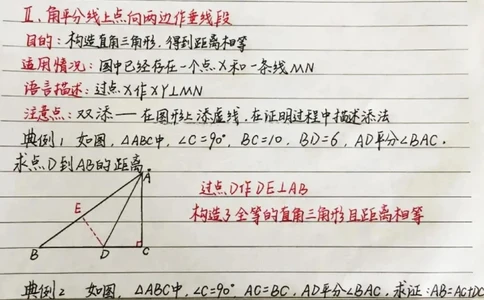 Ⅱ、角平分线上点向两边作垂线段
目的：构造直角三角形，得到距离相等
适用情况：图中已经存在一个点X和一条线MN
语言描述：过点X作XY⊥MN
注意点：双添——在图形上添虚线，在证明过程中描述添法
典例1 如图，△ABC中，∠C=90°，BC=10，BD=6，AD平分∠BAC．
求点D到AB的距离
A
过点D作DE⊥AB
E
构造了全等的直角三角形且距离相等
B D C
典例2 如图，△ABC中，∠C=90°，AC=BC，AD平分∠BAC，求证：AB=AC+DC